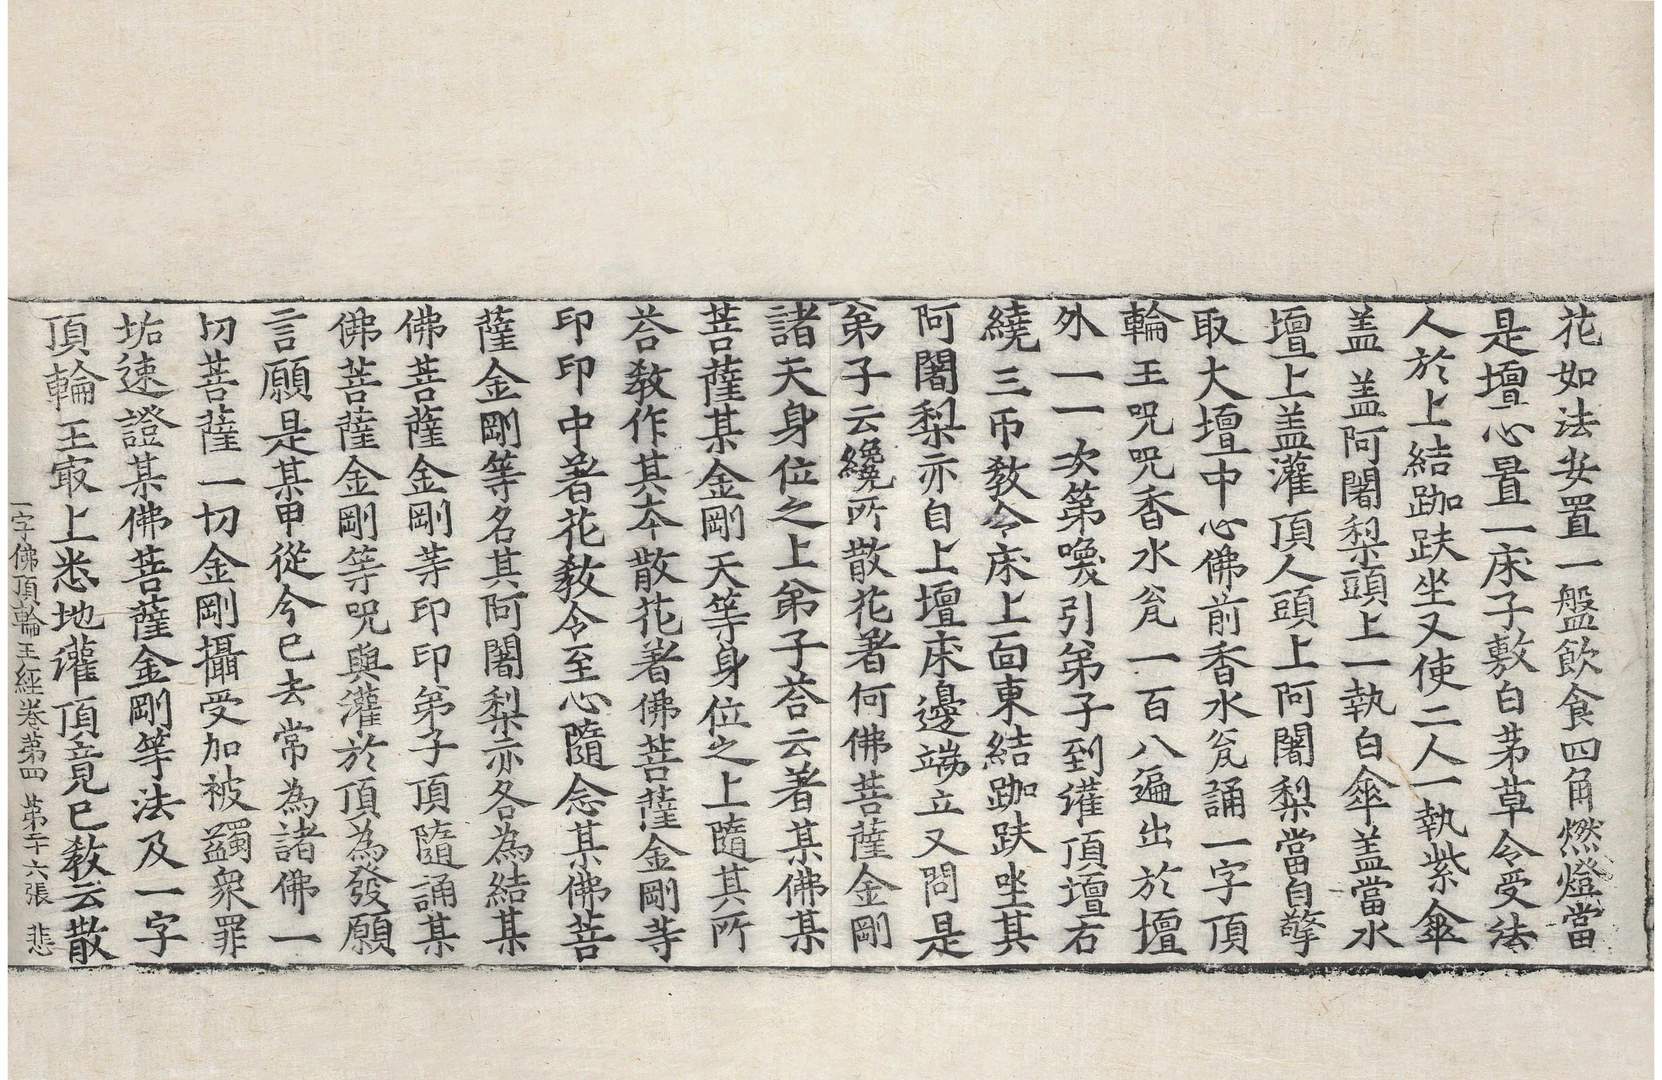 花如法安置一盤飲食四角燃燈當
是壇心置一床子敷白茅草令受法
人於上結跏趺坐又使二人一執紫傘
盖盖阿闍梨頭上一執白傘盖當水
壇上盖灌頂人頭上阿闍梨當自擎
取大壇中心佛前香水瓮誦一字頂
輪王呪呪香水瓮一百八遍出於壇
外一一次第喚引弟子到灌頂壇右
繞三帀教令床上面東結跏趺坐其
阿闍梨亦自上壇床邊端立又問是
弟子云纔所散花著何佛菩薩金剛
諸天身位之上弟子荅云著某佛某
菩薩某金剛天等身位之上隨其所
荅教作其夲散花著佛菩薩金剛等
印印中著花教令至心隨念某佛菩
薩金剛等名其阿闍梨亦各為結某
佛菩薩金剛等印印弟子頂隨誦某
佛菩薩金剛等呪與灌於頂為發願
言願是某甲從今已去常為諸佛一
切菩薩一切金剛攝受加被蠲衆罪
垢速證某佛菩薩金剛等法及一字
頂輪王㝡上悉地灌頂竟已教云散
一字佛頂輪王經卷第四 第二十六張 悲